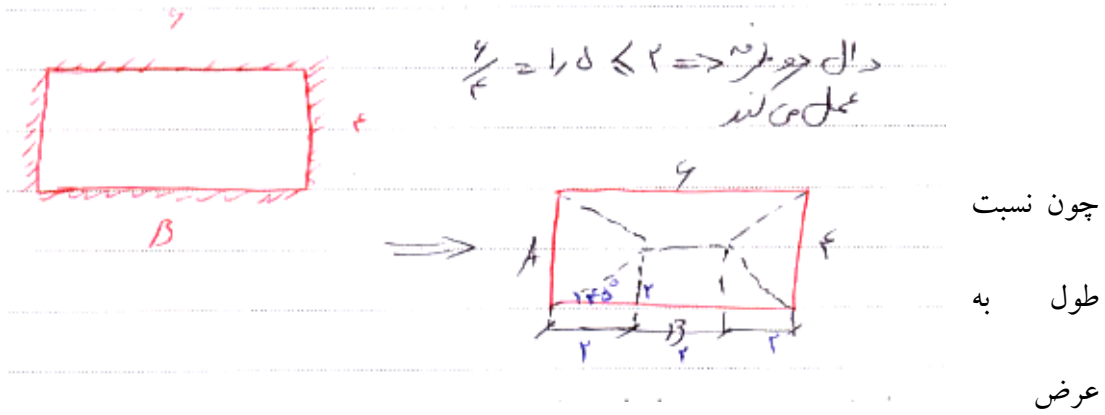 ۶
۶/۴ = ۱,۵ ⩽ ۲ => دال دو طرفه
عمل می کند
۴
B
=>
۶
A
۴
۴۵°
۲
B
۲ ۲ ۲
چون نسبت
طول به
عرض